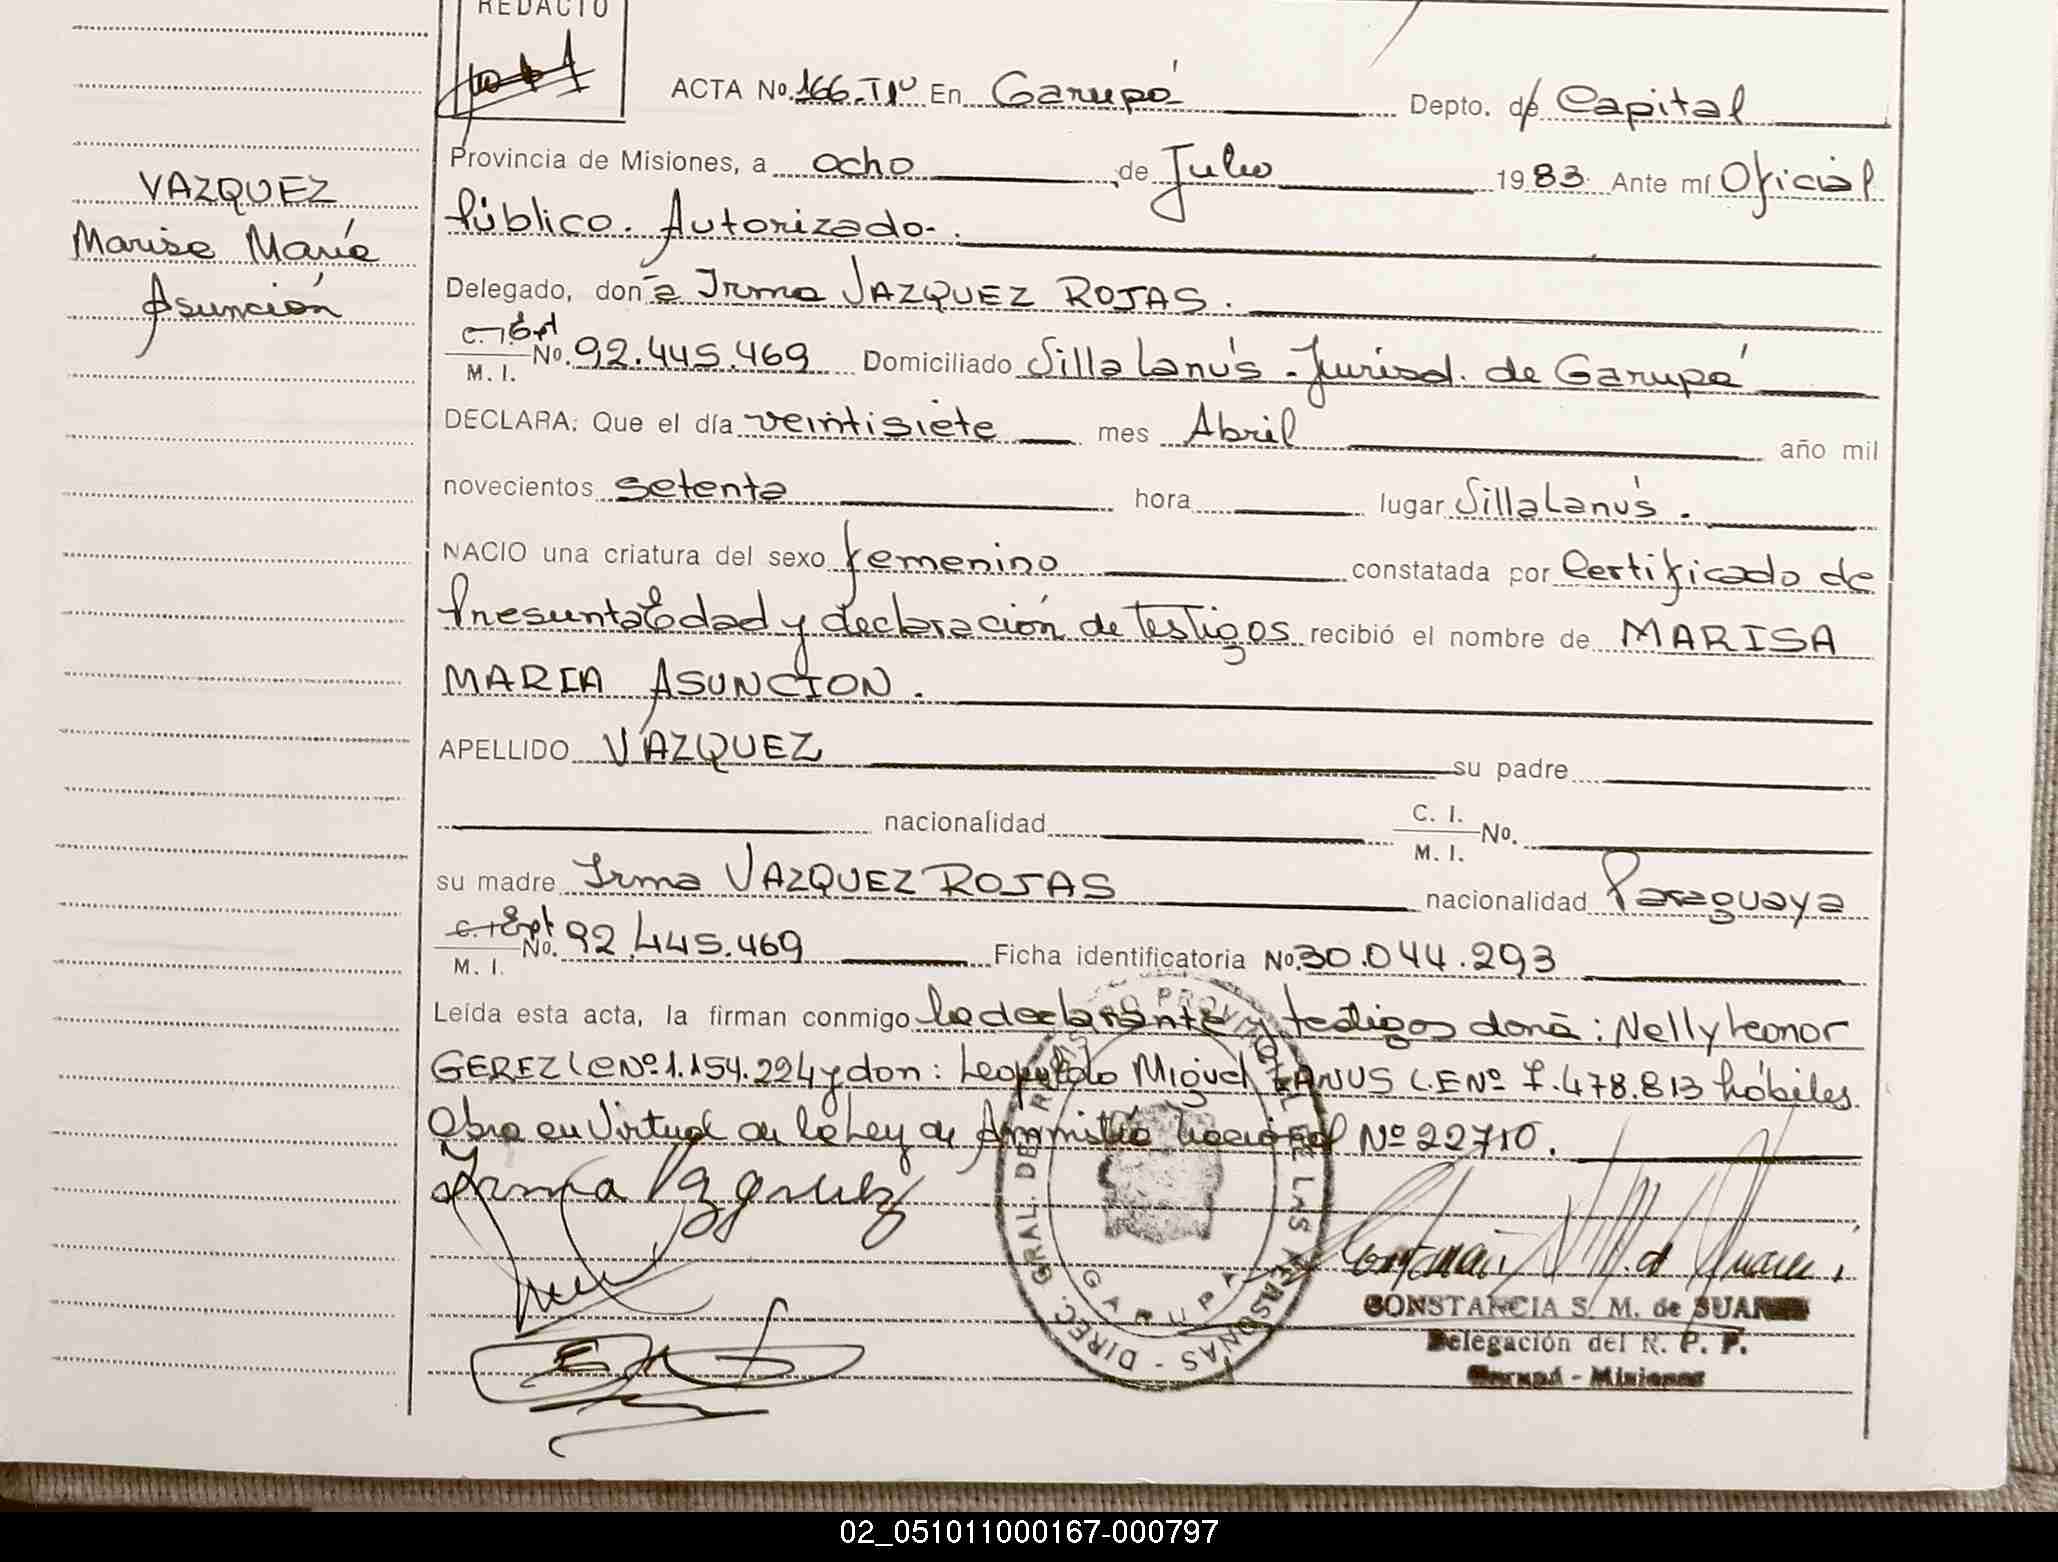 REDACTO
ACTA No. 166. Tº En Garupá Depto. de Capital
Provincia de Misiones, a ocho de Julio 1983 Ante mí Oficial
Público. Autorizado.
VAZQUEZ
Marisa María
Asunción
Delegado, don ã Irma VAZQUEZ ROJAS.
C. I. Expt
M. I. No. 92.445.469 Domiciliado Villa Lanús - Jurisd. de Garupá
DECLARA: Que el día veintisiete mes Abril año mil
novecientos setenta hora lugar Villa Lanús.
NACIO una criatura del sexo femenino constatada por Certificado de
Presunta Edad y declaración de Testigos recibió el nombre de MARISA
MARIA ASUNCION.
APELLIDO VAZQUEZ su padre
nacionalidad C. I. M. I. No.
su madre Irma VAZQUEZ ROJAS nacionalidad Paraguaya
C. I. Expt
M. I. No. 92.445.469 Ficha identificatoria No. 30.044.293
Leída esta acta, la firman conmigo la declarante y testigos doña: Nelly Leonor
GEREZ LC Nº 1.154.224 y don: Leopoldo Miguel LANUS L.E Nº 7.478.813 hábiles
Obra en Virtud de la Ley de Ammistía Nacional Nº 22710.
Irma Vazquez
DIREC. GRAL. DEL REGISTRO PROVINCIAL DE LAS PERSONAS - GARUPA
CONSTANCIA S. M. de SUAREZ
Delegación del R. P. P.
Garupá - Misiones
02_051011000167-000797